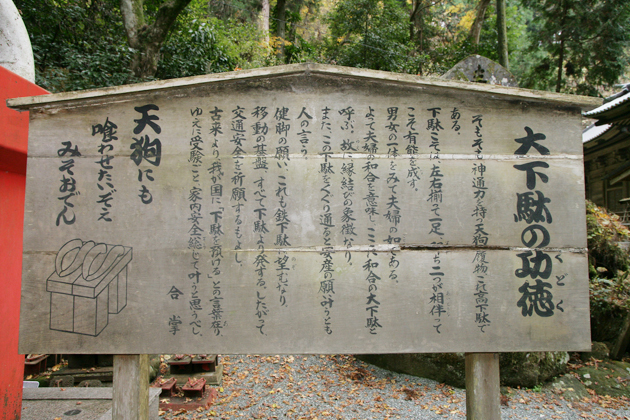 大下駄の功徳
くどく
そもそも神通力を持つ天狗の履物、これ高下駄で
ある。
下駄とは、左右揃って一足、すなわち二つが相伴って
こそ有能を成す。
男女の一体とみて夫婦の如くである。
よって夫婦の和合を意味し、ここに和合の大下駄と
呼ぶ。故に縁結びの象徴なり。
また、この下駄をくぐり通ると安産の願い叶うとも
人の言う。
健脚の願い、これも鉄下駄に望むなり。
移動の基盤、すべて下駄より発する。したがって
交通安全を祈願するもよし。
古来より我が国に「下駄を預ける」との言葉在り
ゆえに受験ごと、家内安全総じて叶うと思うべし。
合掌
天狗にも
喰わせたいぞえ
みそおでん